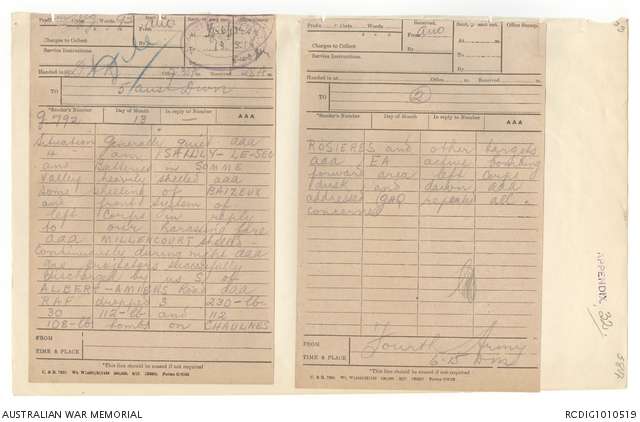 Prefix Code Words
Received
From
By
Sent, or sent out
At
To
By
Office Stamp
Charges to Collect
Service Instructions
Handed in at Office Received
TO 5 Aust Divn
*Sender's Number Day of Month In reply to Number AAA
G 792 13 —
Situation generally quiet aaa
4 am SAILLY-LE-SEC
and Batteries in SOMME
Valley heavily shelled aaa
Some shelling of BAIZEUX
and front system of
left Corps in reply
to our harassing fire
aaa MILLENCOURT shelled
continuously during night aaa
projectors successfully
discharged by us S. of
ALBERT-AMIENS Road aaa
RAF dropped 3 230-lb
30 112-lb and 112
108-lb bombs on CHAULNES
FROM
TIME & PLACE
*This line should be erased if not required
Prefix Code Words
Received
From
By
Sent, or sent out
At
To
By
Office Stamp
Charges to Collect
Service Instructions
Handed in at Office Received
TO (2)
*Sender's Number Day of Month In reply to Number AAA
ROSIERES and other targets
aaa EA active bombing
forward area left Corps
dusk and dawn aaa
addressed GHQ repeated all
concerned
FROM Fourth Army
TIME & PLACE 6-15 am
*This line should be erased if not required
APPENDIX 22
AUSTRALIAN WAR MEMORIAL
RCDIG1010519